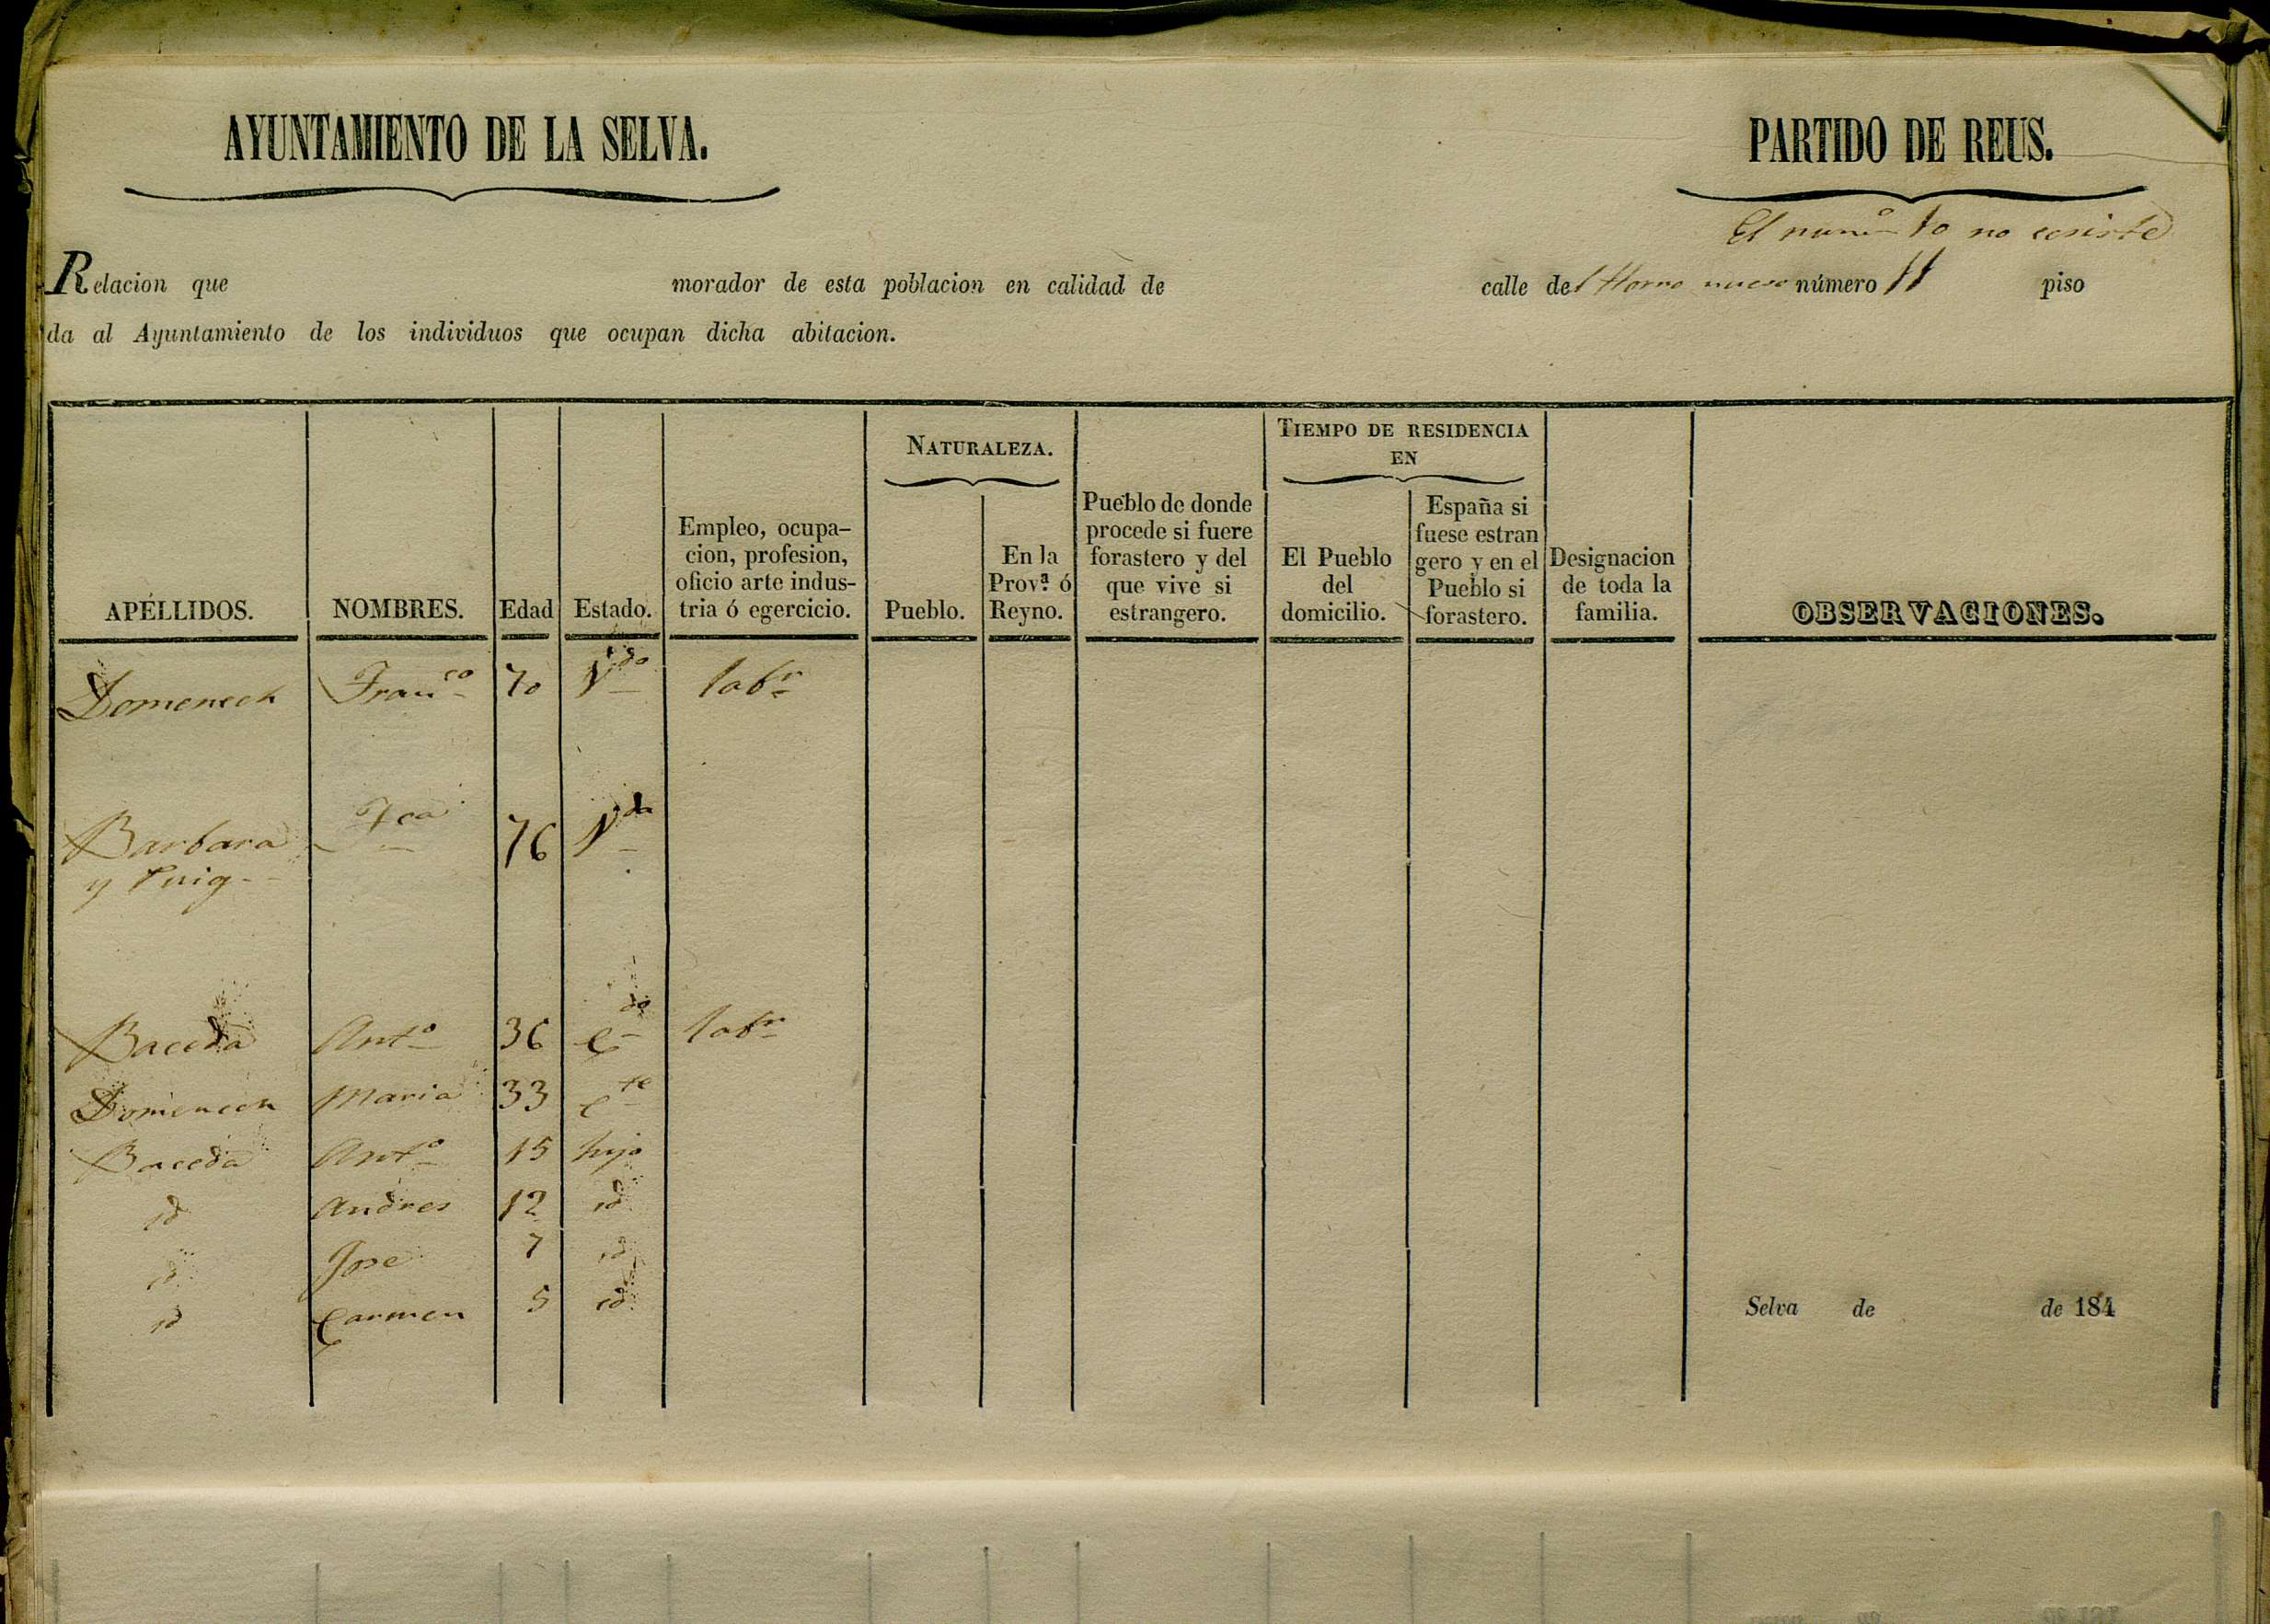 AYUNTAMIENTO DE LA SELVA.
PARTIDO DE REUS.
El num.o 10 no ecsiste
Relacion que morador de esta poblacion en calidad de calle del Horno nuevo número 11 piso
da al Ayuntamiento de los individuos que ocupan dicha abitacion.
APÉLLIDOS.
NOMBRES.
Edad
Estado.
Empleo, ocupa-
cion, profesion,
oficio arte indus-
tria ó egercicio.
NATURALEZA.
Pueblo.
En la
Prov.a ó
Reyno.
Pueblo de donde
procede si fuere
forastero y del
que vive si
estrangero.
TIEMPO DE RESIDENCIA
EN
El Pueblo
del
domicilio.
España si
fuese estran
gero y en el
Pueblo si
forastero.
Designacion
de toda la
familia.
OBSERVACIONES.
Domenech Fran.co 70 V.do lab.r
Barbara F.ca 76 V.da
y Puig
Baceda Ant.o 36 C.do lab.r
Domenech Maria 33 C.te
Baceda Ant.o 15 hijo
id Andres 12 id
id Jose 7 id
id Carmen 5 id
Selva de de 184